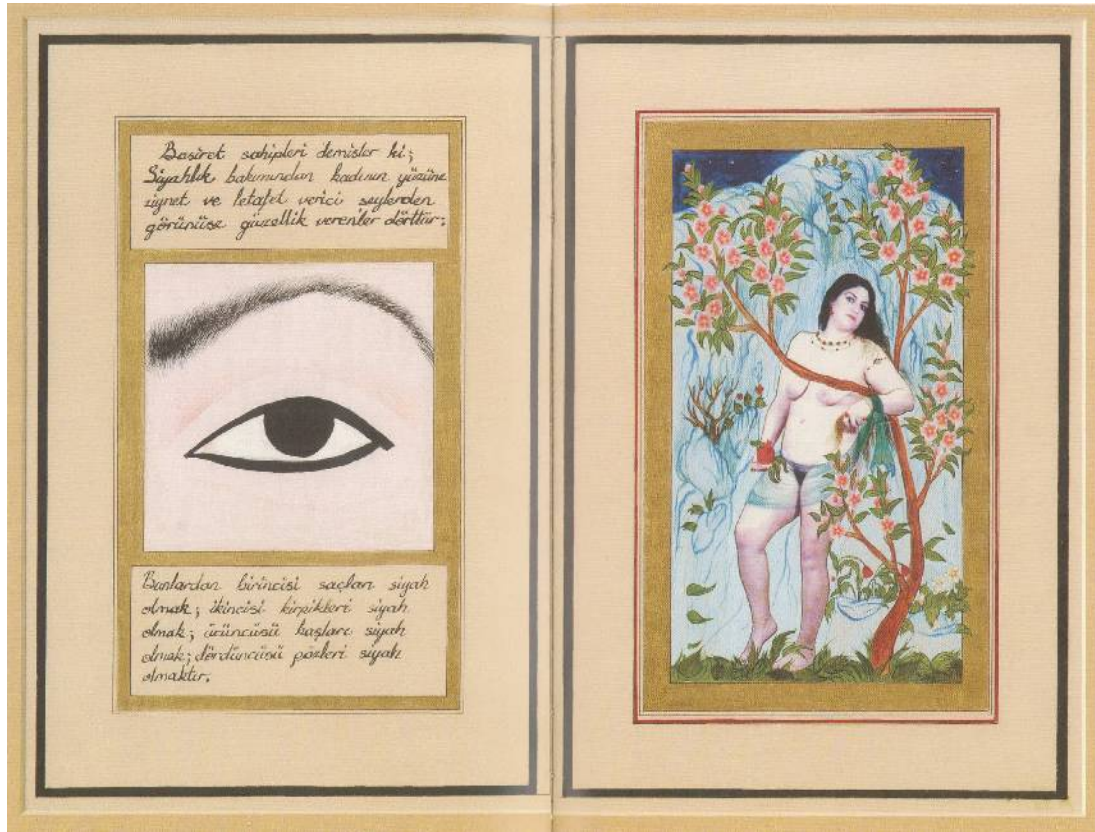 Basiret sahipleri demisler ki;
Siyahlık bakımından kadının yüzüne
ziynet ve letafet verici seylerden
görünüse güzellik verenler dörttür:
Bunlardan birincisi saçları siyah
olmak; ikincisi kirpikleri siyah
olmak; üçüncüsü kaşları siyah
olmak; dördüncüsü gözleri siyah
olmaktır.